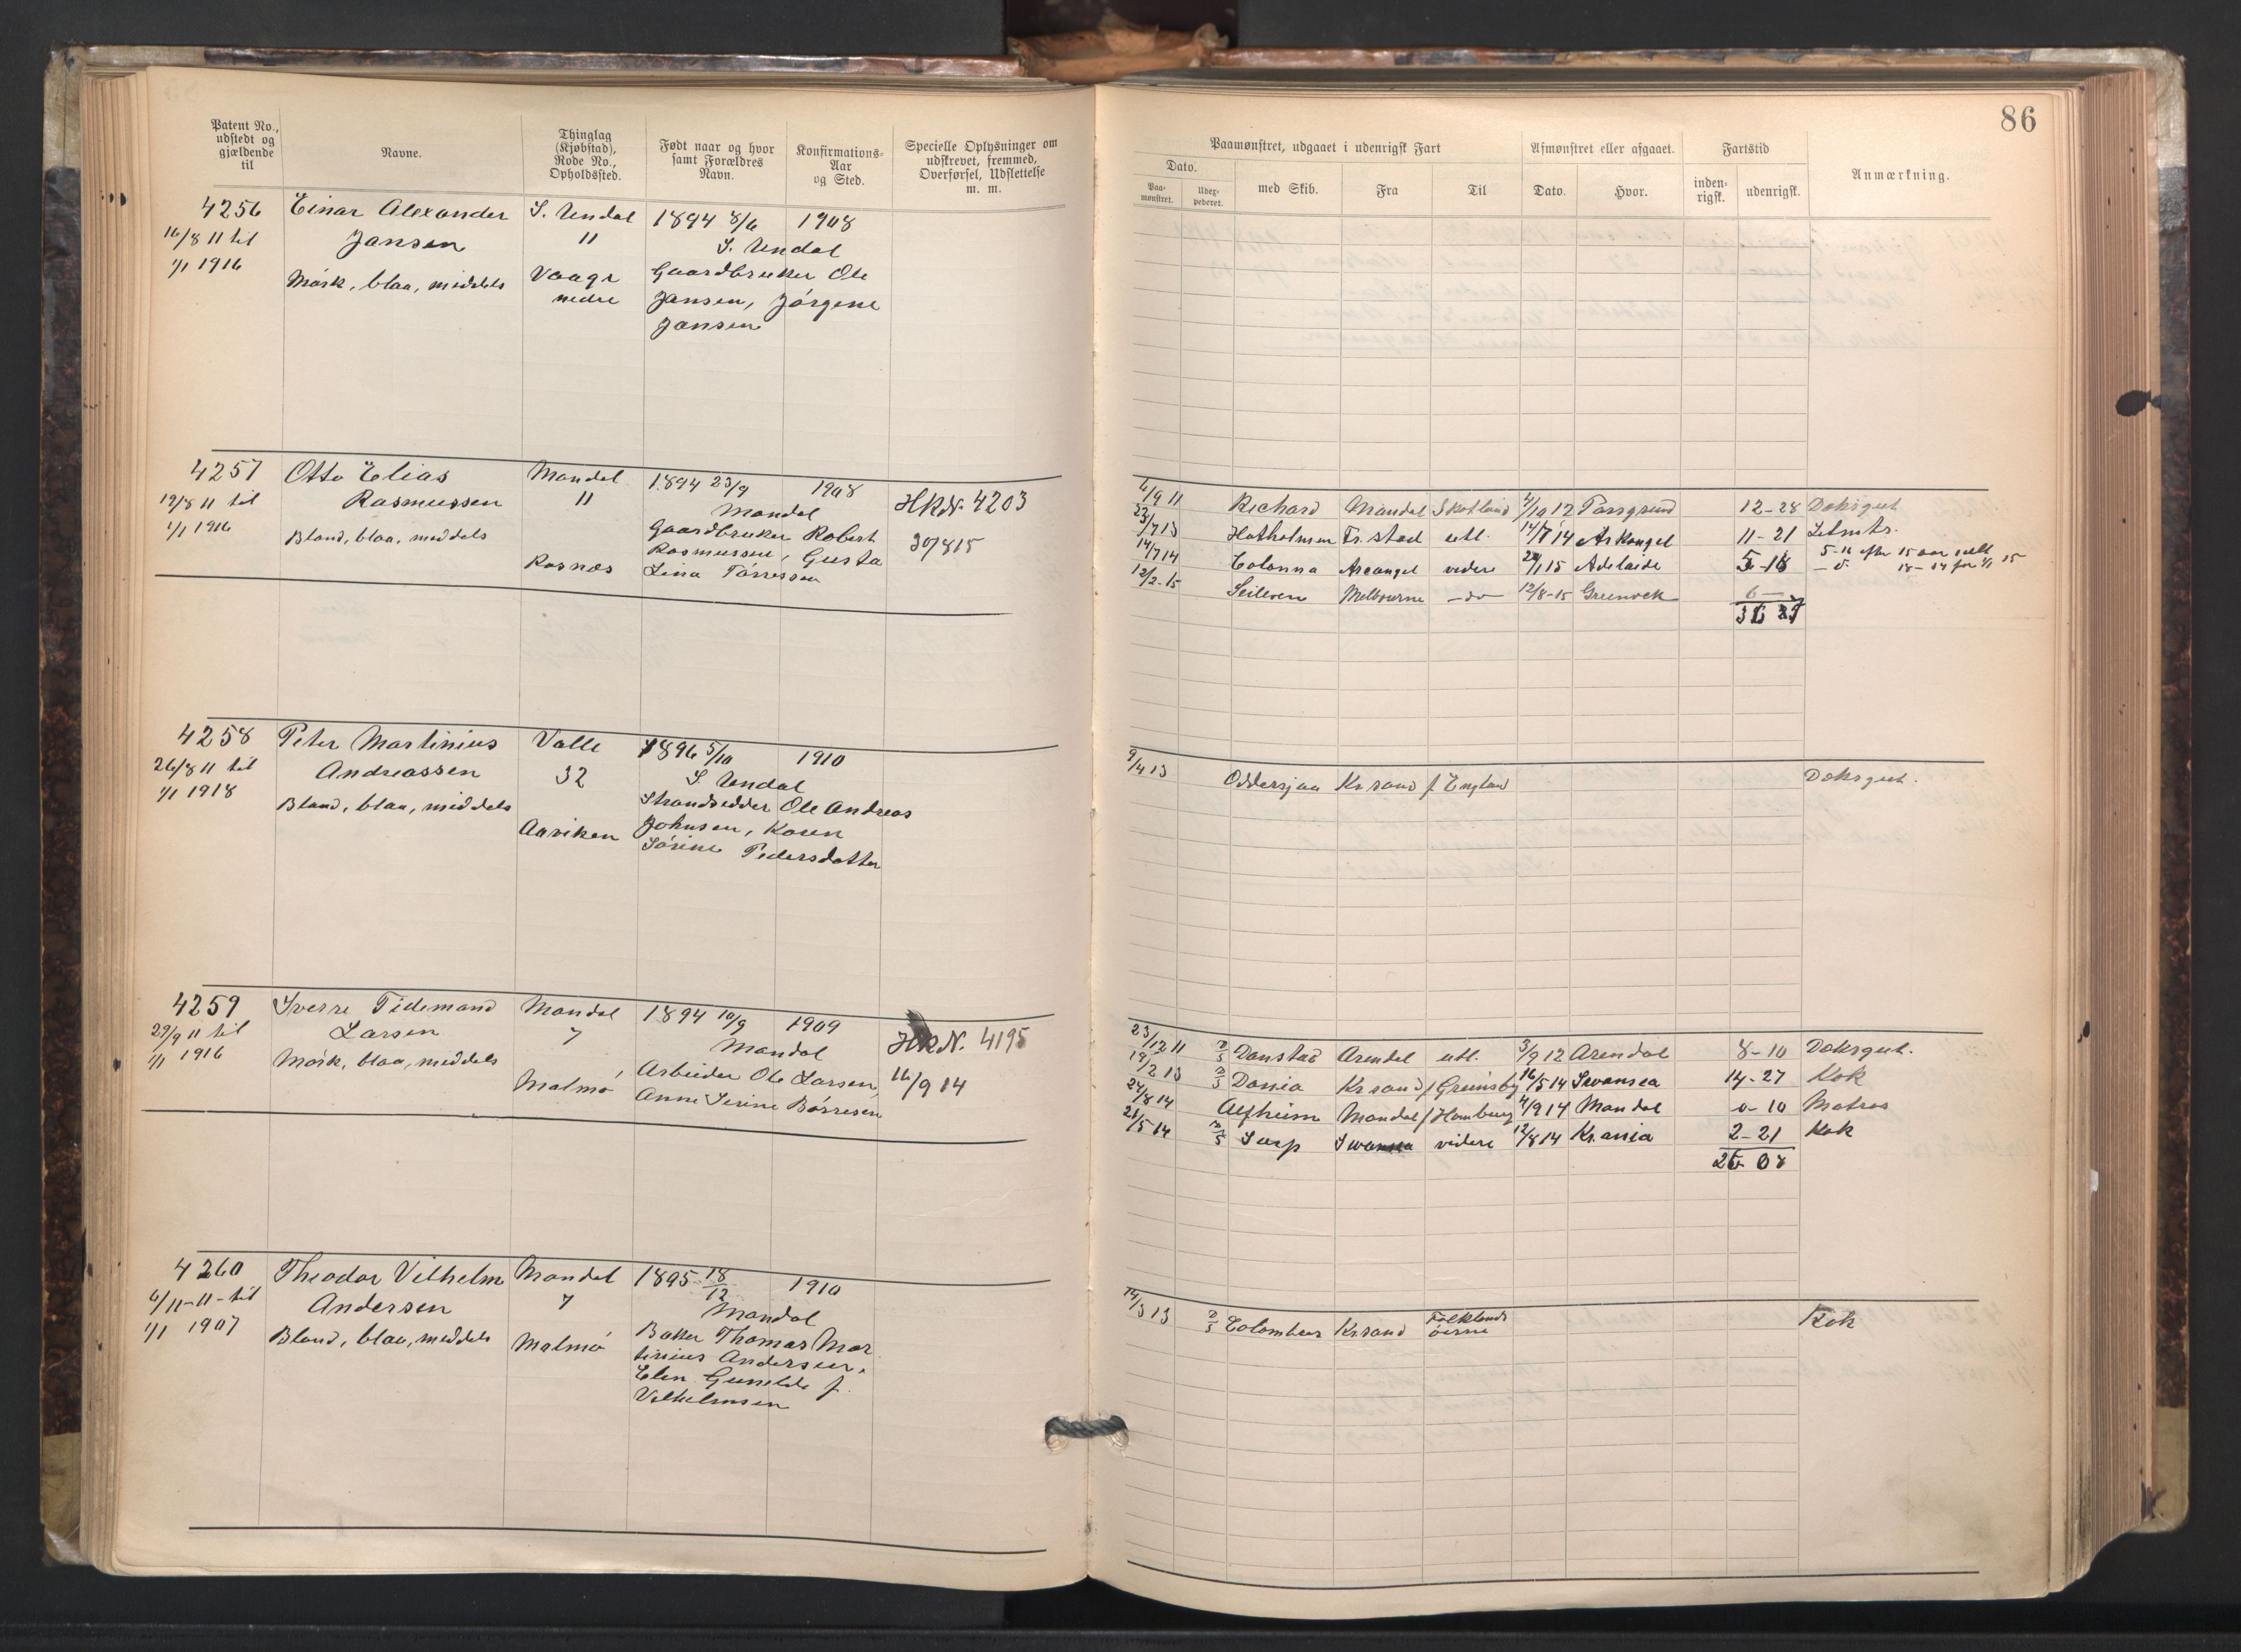 86
Patent No., udstedt og gjældende til
Navne.
Thinglag (Kjøbstad), Rode No., Opholdssted.
Født naar og hvor samt Forældres Navn.
Konfirmations-Aar og Sted.
Specielle Oplysninger om udskrevet, fremmed, Overførsel, Udslettelse m. m.
Paamønstret, udgaaet i udenrigsk Fart
Afmønstret eller afgaaet.
Fartstid
Anmærkning.
Dato.
Paa-mønstret.
med Skib.
Fra
Til
Dato.
Hvor.
inden-rigsk.
udenrigsk.
4256 Einar Alexander S. Undal 1894 8/6 1908
16/8 11 til Jansen 11 S. Undal
1/1 1916 Mørk, blaa, middels Vaage Gaardbruker Ole
nedre Jansen, Jørgene
Jansen
4257 Otto Elias Mandal 1894 23/9 1908 HkN. 4203
19/8 11 til Rasmussen 11 Mandal
1/1 1916 Blond, blaa, middels Gaardbruker Robert 30/8 15
Rasmussen, Gusta
Rosnæs Lina Tørressen
6/9 11 Richard Mandal Skotland 4/10 12 Porsgrund 12-28 Doksgut
23/7 13 Hatholmen Fr. stad utl. 14/7 14 Arkangel 11-21 Letmtr.
14/7 14 Colonna Arcangel videre 29/1 15 Adelaide 5-18
12/2-15 Seileren Melbourne -do- 12/8-15 Greenock 6-
4258 Peter Martinius Valle 1896 5/10 1910
26/8 11 til Andreassen 32 S Undal
1/1 1918 Blond, blaa, middels Strandsidder Ole Andreas
Aariken Johnsen, Karen
Sørine Pedersdatter
9/4 13 Oddersjaa Kr.sand f England Doksgut.
4259 Sverre Tidemand Mandal 1894 10/9 1909 HkN. 4195
29/9 11 til Larsen 7 Mandal
1/1 1916 Mørk, blaa, middels Arbeider Ole Larsen, 16/9 14
Malmø Anne Serine Børresen
23/12 11 Danstad Arendal utl. 3/9 12 Arendal 8-10 Doksgut.
19/2 13 Dania Kr.sand f Grimsby 16/5 14 Swansea 14-27 Kok
24/8 14 Alfheim Mandal f Hamburg 4/9 14 Mandal 0-10 Matros
21/5 14 Sarp Swansea videre 12/8 14 Kr.ania 2-21 Kok
26-08
4260 Theodor Vilhelm Mandal 1895 18/12 1910
6/11-11-til Andersen 7 Mandal
1/1 1907 Blond, blaa, middels Malmø Baker Thomas Mar
tinius Andersen,
Elen Gunelde f.
Vilhelmsen
14/3 13 Colombus Kr.sand Falklands Kok
øerne